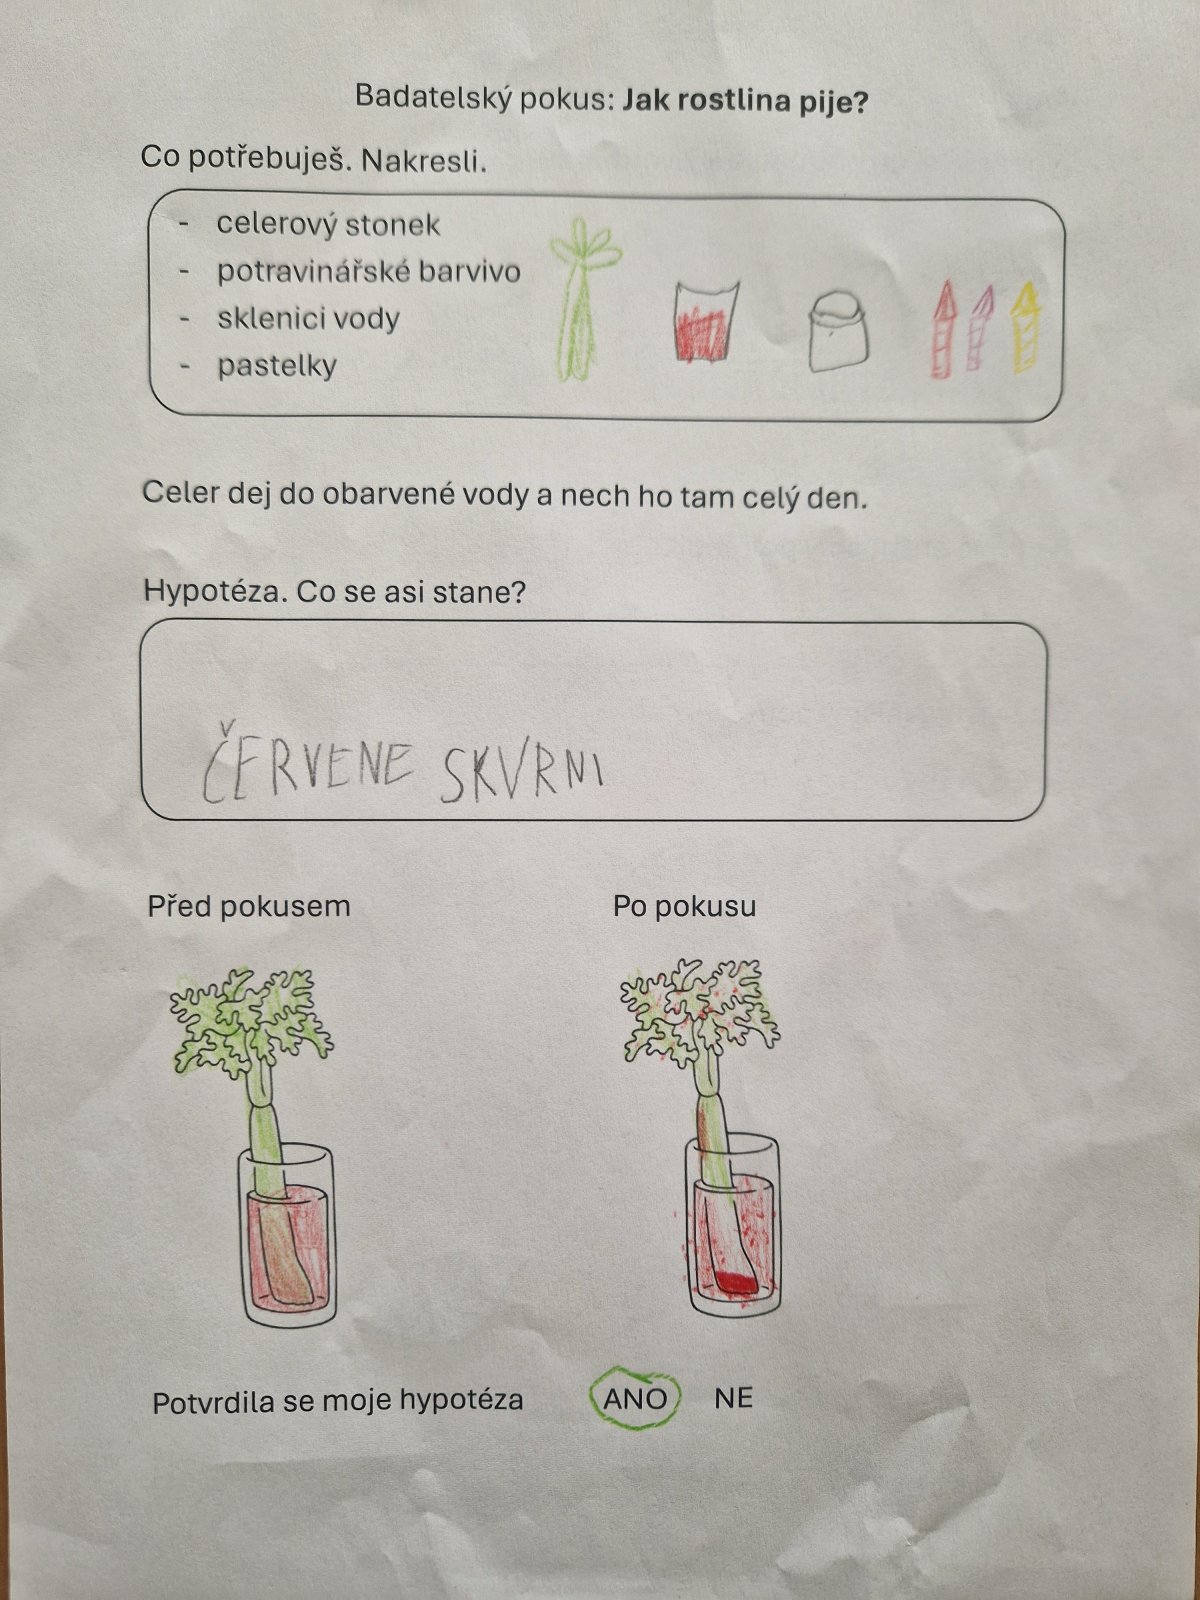 Badatelský pokus: Jak rostlina pije?
Co potřebuješ. Nakresli.
- celerový stonek
- potravinářské barvivo
- sklenici vody
- pastelky
Celer dej do obarvené vody a nech ho tam celý den.
Hypotéza. Co se asi stane?
ČERVENE SKVRNI
Před pokusem
Po pokusu
Potvrdila se moje hypotéza ANO NE